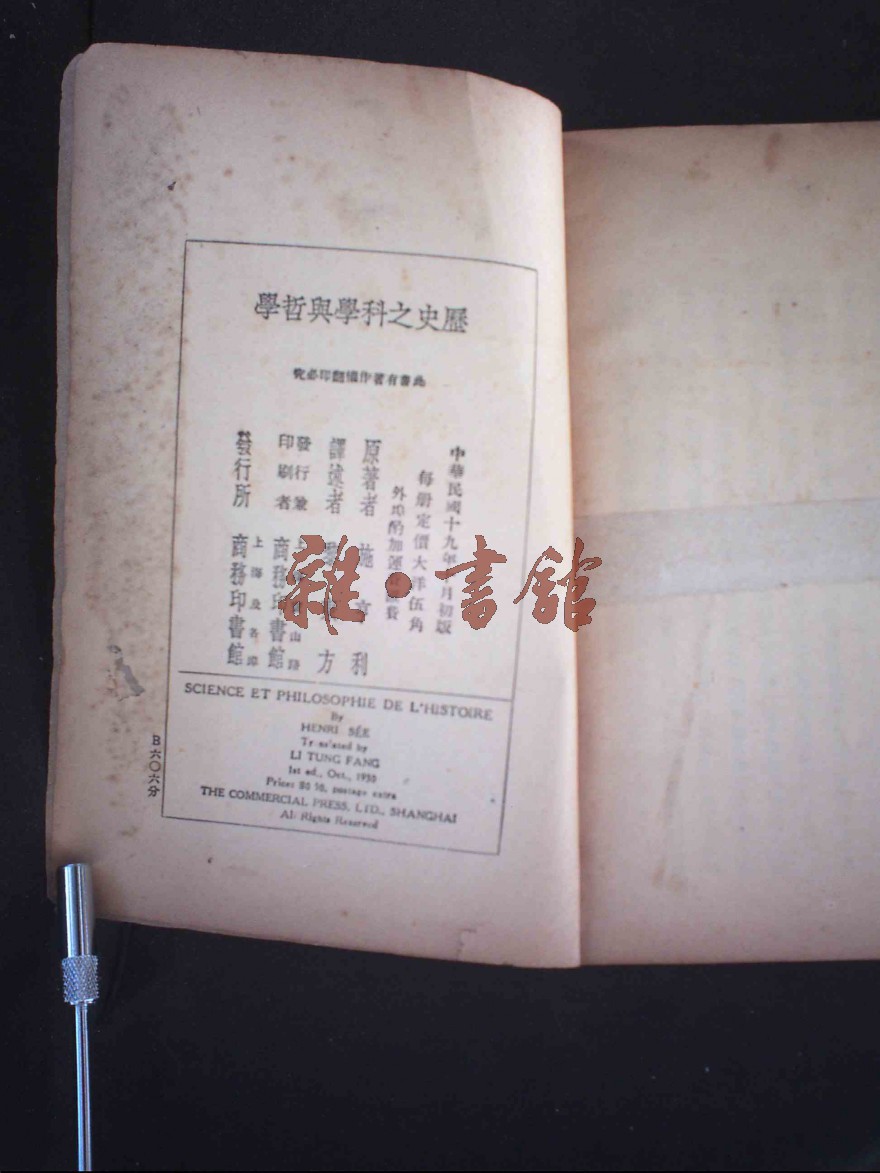 歷史之科學與哲學
此書有著作權翻印必究
中華民國十九年 月初版
每册定價大洋伍角
外埠酌加運 費
原著者 施 利
譯述者 方
發行兼
印刷者 商務印書館
發行所 上海及各埠
商務印書館
SCIENCE ET PHILOSOPHIE DE L'HISTOIRE
By
HENRI SÉE
Translated by
LI TUNG FANG
1st ed., Oct., 1930
Price: $0.50, postage extra
THE COMMERCIAL PRESS, LTD., SHANGHAI
All Rights Reserved
B六〇六分
雜·書館